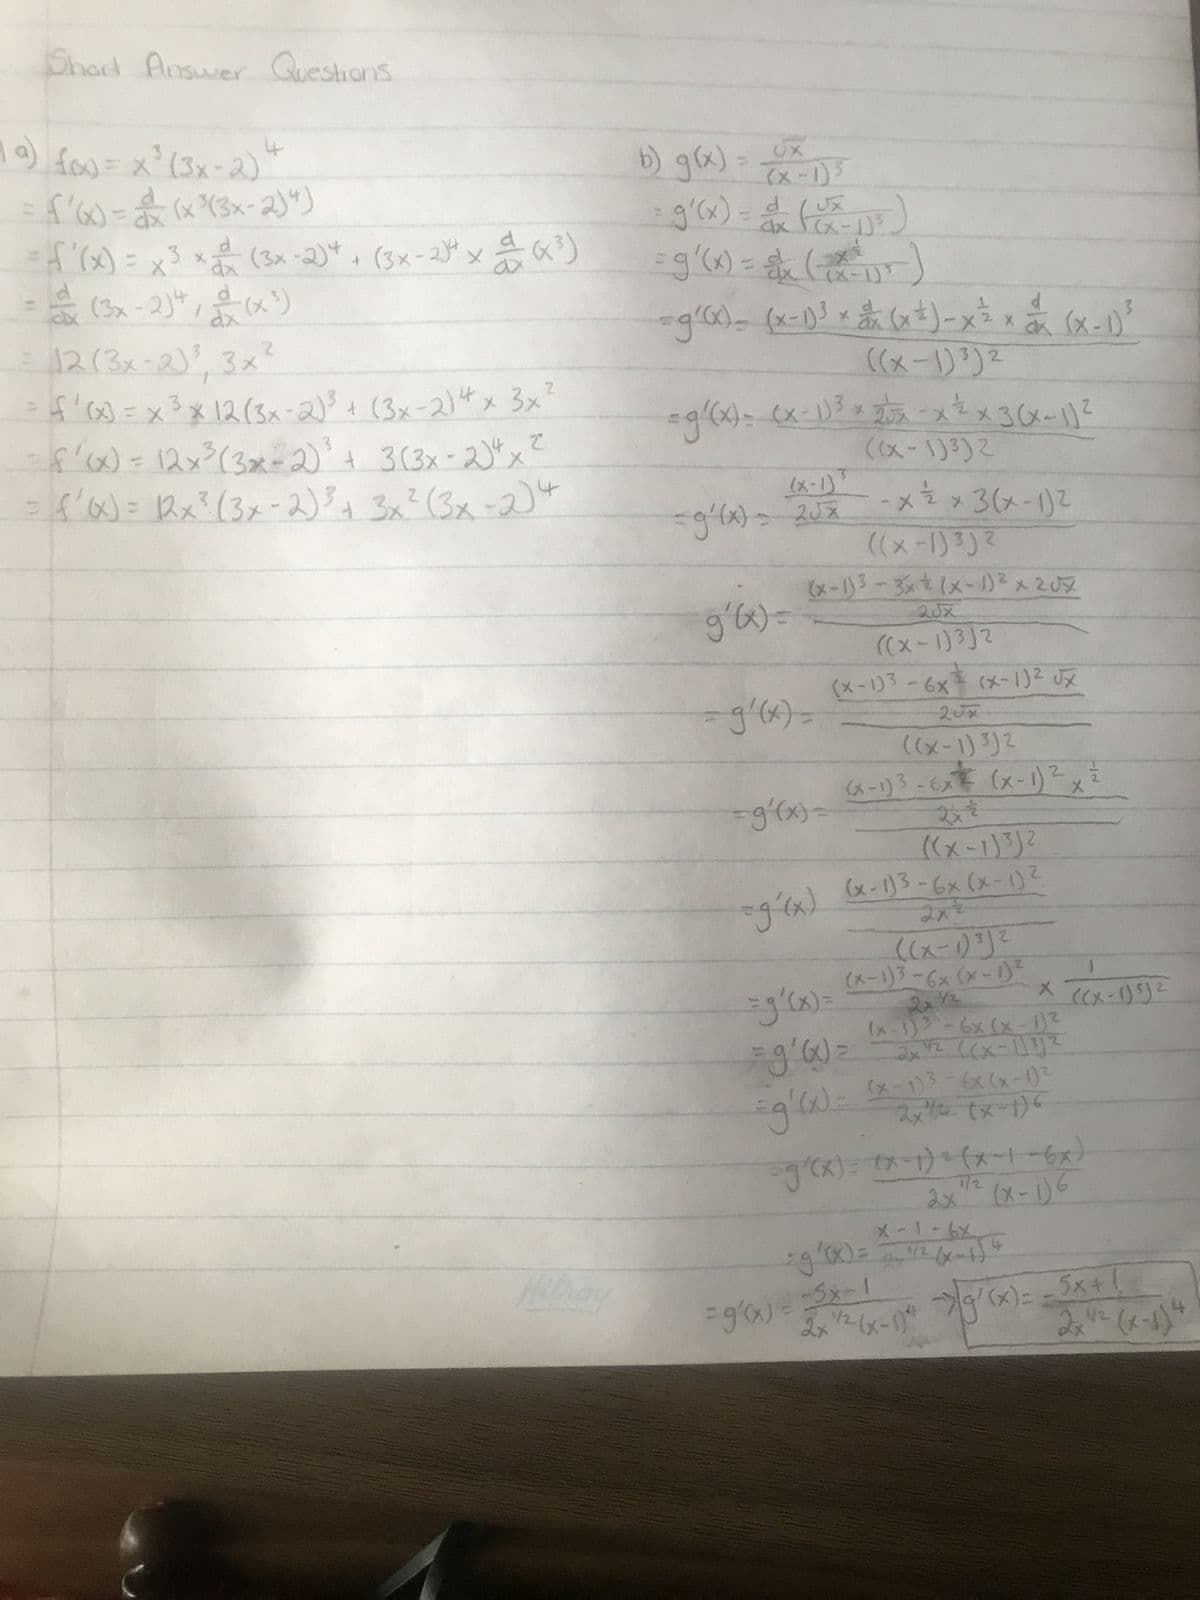 Short Answer Questions
1a) f(x) = x³(3x-2)⁴
= f'(x) = d/dx (x³(3x-2)⁴)
= f'(x) = x³ × d/dx (3x-2)⁴ + (3x-2)⁴ × d/dx (x³)
= d/dx (3x-2)⁴, d/dx (x³)
= 12(3x-2)³, 3x²
= f'(x) = x³ × 12(3x-2)³ + (3x-2)⁴ × 3x²
= f'(x) = 12x³(3x-2)³ + 3(3x-2)⁴x²
= f'(x) = 12x³(3x-2)³ + 3x²(3x-2)⁴
b) g(x) = √x / (x-1)³
= g'(x) = d/dx (√x / (x-1)³)
= g'(x) = d/dx (x^½ / (x-1)³)
= g'(x) = (x-1)³ × d/dx (x^½) - x^½ × d/dx (x-1)³ / ((x-1)³)²
= g'(x) = (x-1)³ × 1/2√x - x^½ × 3(x-1)² / ((x-1)³)²
= g'(x) = (x-1)³/2√x - x^½ × 3(x-1)² / ((x-1)³)²
g'(x) = (x-1)³ - 3x^½(x-1)² × 2√x / 2√x / ((x-1)³)²
= g'(x) = (x-1)³ - 6x^½ (x-1)² √x / 2√x / ((x-1)³)²
= g'(x) = (x-1)³ - 6x^½ (x-1)² x^½ / 2x^½ / ((x-1)³)²
= g'(x) (x-1)³ - 6x(x-1)² / 2x^½ / ((x-1)³)²
= g'(x) = (x-1)³ - 6x(x-1)² / 2x^1/2 × 1 / ((x-1)³)²
= g'(x) = (x-1)³ - 6x(x-1)² / 2x^1/2 ((x-1)³)²
= g'(x) = (x-1)³ - 6x(x-1)² / 2x^1/2 (x-1)⁶
= g'(x) = (x-1)²(x-1-6x) / 2x^1/2 (x-1)⁶
= g'(x) = x-1-6x / 2x^1/2 (x-1)⁴
= g'(x) = -5x-1 / 2x^1/2 (x-1)⁴ → g'(x) = - 5x+1 / 2x^1/2 (x-1)⁴